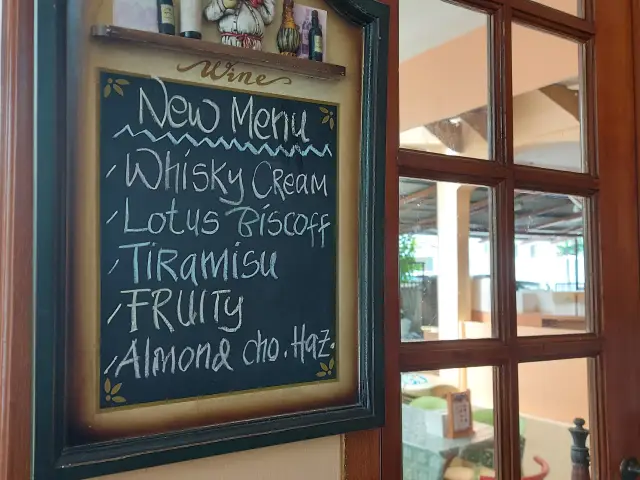 Wine
New Menu
/Whisky Cream
/Lotus Biscoff
/Tiramisu
/FRUITY
/Almond cho. Haz.